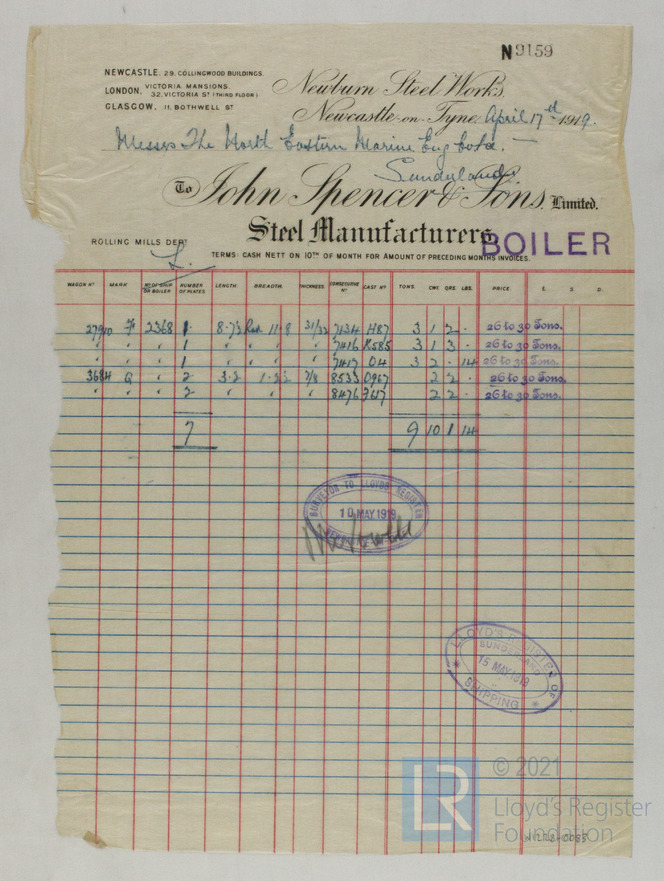 N 9159
NEWCASTLE. 29. COLLINGWOOD BUILDINGS.
LONDON, VICTORIA MANSIONS. 32, VICTORIA ST (THIRD FLOOR)
GLASGOW, 11. BOTHWELL ST
Newburn Steel Works.
Newcastle-on-Tyne. April 17th 1919.
Messrs The North Eastern Marine Eng Co Ld.
Sunderland.
To John Spencer & Sons, Limited.
Steel Manufacturers
BOILER
ROLLING MILLS DEPT
L.
TERMS: CASH NETT ON 10TH OF MONTH FOR AMOUNT OF PRECEDING MONTHS INVOICES.
WAGON Nº MARK Nº OF SHIP OR BOILER NUMBER OF PLATES LENGTH. BREADTH. THICKNESS CONSECUTIVE Nº CAST Nº TONS. CWT QRS. LBS. PRICE. £. S. D.
27910 F 2368 1 8·7½ Rad 11·8 31/32 7134 H87 3 1 2 - 26 to 30 Tons.
" " " 1 " " " 7416 K585 3 1 3 - 26 to 30 Tons.
" " " 1 " " " 7417 04 3 2 - 14 26 to 30 Tons.
3684 G " 2 3·2 7/8 8533 0967 2 2 - 26 to 30 Tons.
" " " 2 " " " 8476 2 2 - 26 to 30 Tons.
7 9 10 1 14
SURVEYOR TO LLOYDS REGISTER
10 MAY 1919
LLOYD'S REGISTER OF
SUNDERLAND
15 MAY 1919
SHIPPING
LR
© 2021
Lloyd's Register
Foundation